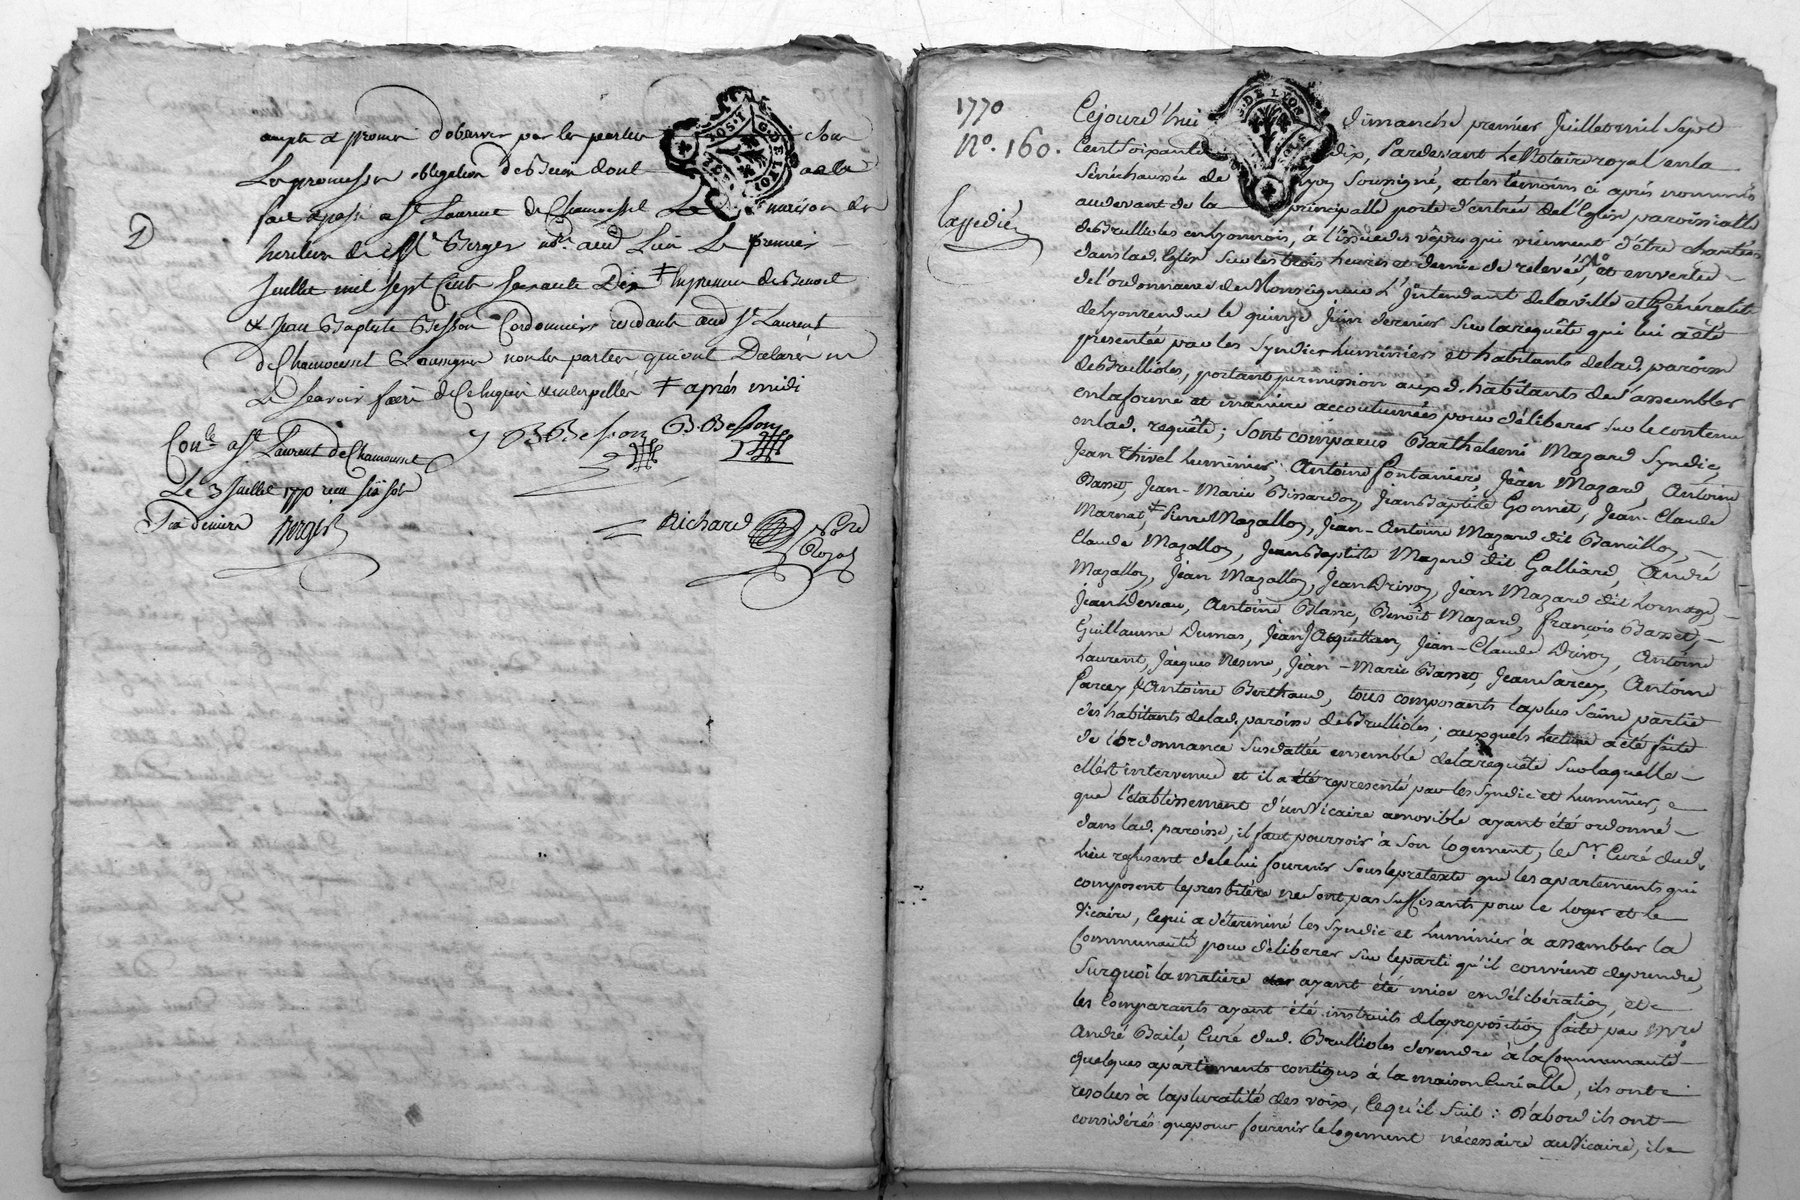 accepté et promis d'observer par les parties
Les promesses obligation de Biens dont
fait et passé a St. Laurent de Chamousset maison des
heritiers de Mr. Berger nore. aud. Lieu Le premier
Juillet mil sept Cent Soixante Dix ‡ En presence de Benoit
& Jean Baptiste Besson Cordonniers residants aud. St. Laurent
de Chamousset Et soussignés non les parties qui ont Declaré ne
Le sçavoir faire de ce Enquis & interpellés ‡ après midi
B Besson B. Besson
Conlé. a St. Laurent de Chamousset
Le 3 Juillet 1770 reçu six sols
Berger
Richard Nore Royal
1770
N°. 160.
Expédiée
G. DE LYON
Cejourd'hui dimanche premier Juillet mil Sept
Cent Soixante dix, Pardevant Le Notaire royal en la
Sénéchaussée de Lyon Soussigné, et les témoins ci après nommés
audevant de la principalle porte d'entrée de l'Eglise paroissialle
de Brullioles en Lyonnois, à l'issue des vêpres qui viennent d'être chantées
dans lad. Eglise Sur les trois heures et demie de relevée, et en vertu
de l'ordonnance de Monseigneur L'Intendant de la ville et Généralité
de Lyon rendue le quinze Juin dernier Sur la requête qui lui a été
présentée par les Syndics luminiers et habitants de lad. paroisse
de Brullioles, portant permission auxd. habitants de S'assembler
en la forme et manière accoutumées pour délibérer Sur le contenu
en lad. requête; Sont comparus Barthelemi Mazard Syndic,
Jean Thivel luminier, Antoine Fontanier, Jean Mazard, Antoine
Basset, Jean-Marie Bissardon, Jean Baptiste Gonnet, Jean-Claude
Marnat, ‡ Pierre Mazallon, Jean-Antoine Mazard dit Bancillon,
Claude Mazallon, Jean Baptiste Mazard dit Galliard, André
Mazallon, Jean Mazallon, Jean Drivon, Jean Mazard dit Lornage,
Jean Dereau, Antoine Blanc, Benoît Mazard, François Basset,
Guillaume Dumas, Jean Jacquettan, Jean-Claude Drivon, Antoine
Laurent, Jacques Nesme, Jean-Marie Basset, Jean Sarcey, Antoine
Sarcey & Antoine Berthaud, tous composants la plus Saine partie
des habitants de lad. paroisse de Brullioles; auxquels lecture a été faite
de l'ordonnance Susdattée ensemble de la requête Sur laquelle
elle est intervenue et il a été representé par les Syndic et luminier,
que l'établissement d'un Vicaire amovible ayant été ordonné
dans lad. paroisse, il faut pourvoir à Son logement, le Sr. Curé dud.
Lieu refusant de le lui fournir Sous le prétexte que les apartements qui
composent le presbitère ne Sont pas Suffisants pour le loger et le
Vicaire, Ce qui a déterminé les Syndic et Luminier à assembler la
Communauté pour délibérer Sur le parti qu'il convient de prendre,
Surquoi la matière ayant été mise en délibération, et
les Comparants ayant été instruits de la proposition faite par Mre.
André Baile, Curé dud. Brullioles de vendre à la Communauté
quelques apartements contigus à la maison Curialle, ils ont
résolus à la pluralité des voix, Ce qu'il Suit: D'abord ils ont
considérés que pour fournir le logement nécessaire au Vicaire, il